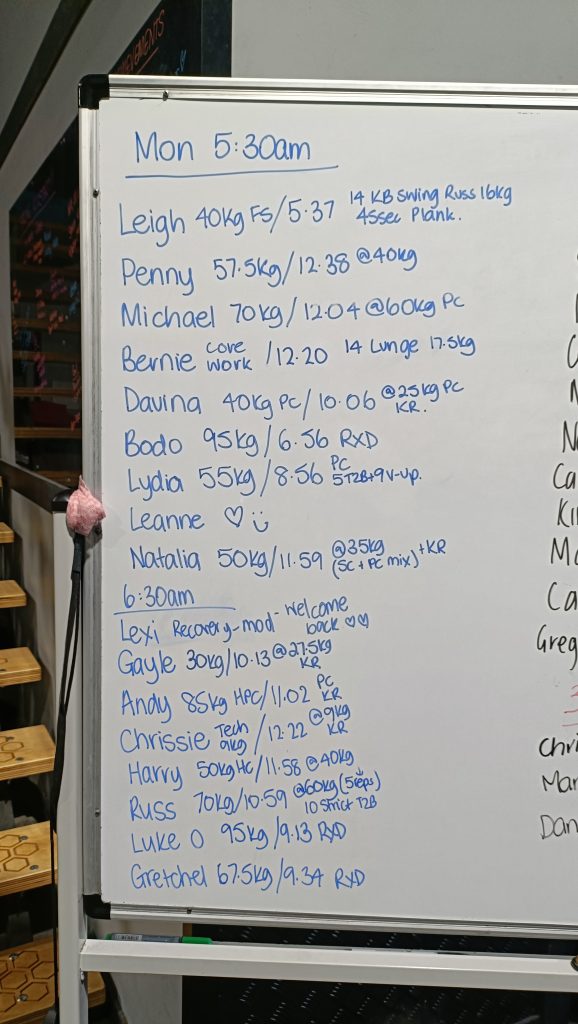 Mon 5:30am
Leigh 40kg FS/5.37 14 KB Swing Russ 16kg
45sec Plank.
Penny 57.5kg/12.38 @40kg
Michael 70kg/12.04 @60kg PC
Bernie core work /12.20 14 Lunge 17.5kg
Davina 40kg PC/10.06 @25kg PC
KR.
Bodo 95kg/6.56 RXD
Lydia 55kg/8.56 PC
5T2B+9V-up.
Leanne ♡ :)
Natalia 50kg/11.59 @35kg +KR
(SC + PC mix)
6:30am
Lexi Recovery-mod - Welcome
back ♡♡
Gayle 30kg/10.13 @27.5kg
KR
Andy 85kg HPC/11.02 PC
KR
Chrissie Tech 9kg /12.22 @9kg
KR
Harry 50kg HC/11.58 @40kg
Russ 70kg/10.59 @60kg (5reps)
10 Strict T2B
Luke O 95kg/9.13 RXD
Gretchel 67.5kg/9.34 RXD
Ca
Greg
Chri
Mar
Dan